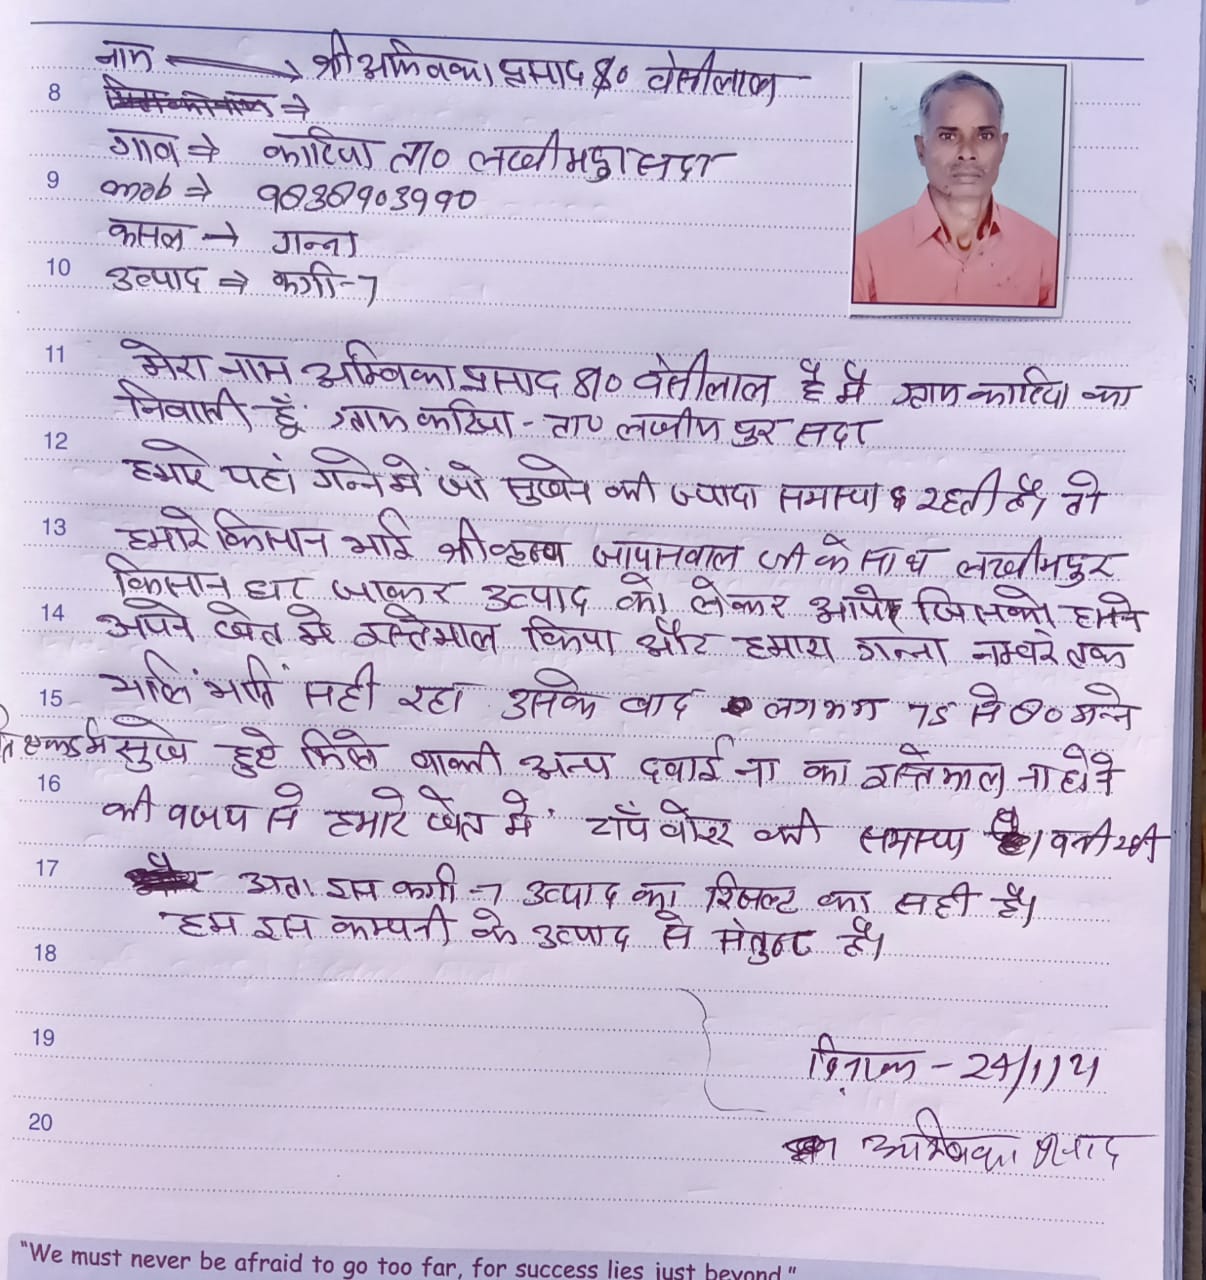 नाम → श्री अम्बिका प्रसाद S/o वंसीलाल
8
गाव ⇒ कारिया ता० लखीमपुर सदर
9 mob ⇒
फसल → गन्ना
10 उत्पाद ⇒ कर्गी-7
11 मेरा नाम अम्बिका प्रसाद S/o वंसीलाल है मै ग्राम कारिया का
निवासी हूँ ग्राम करिया - ता० लखीमपुर सदर
12
हमारे यहां गन्ने में जो सुखने की ज्यादा समस्या रहती है, तो
13 हमारे किसान भाई श्री कृष्ण जायसवाल जी के साथ लखीमपुर
किसान घर जाकर उत्पाद को लेकर आये जिसको हमने
14 अपने खेत में इस्तेमाल किया और हमारा गन्ना नम्बर तक
15 भलिं भातिं सही रहा उसके बाद लगभग 75 से 80 गन्ने
एकड़ मे सुखे हुऐ मिले बाकी अन्य दवाई का इस्तेमाल ना होने
16
की वजय से हमारे खेत में टॉप वोरर की समस्या बनी रही
17 अतः इस कर्गी-7 उत्पाद का रिजल्ट का सही है।
हम इस कम्पनी के उत्पाद से संतुष्ट है।
18
19
दिनांक - 24/1/21
20
अम्बिका प्रसाद
"We must never be afraid to go too far, for success lies just beyond."